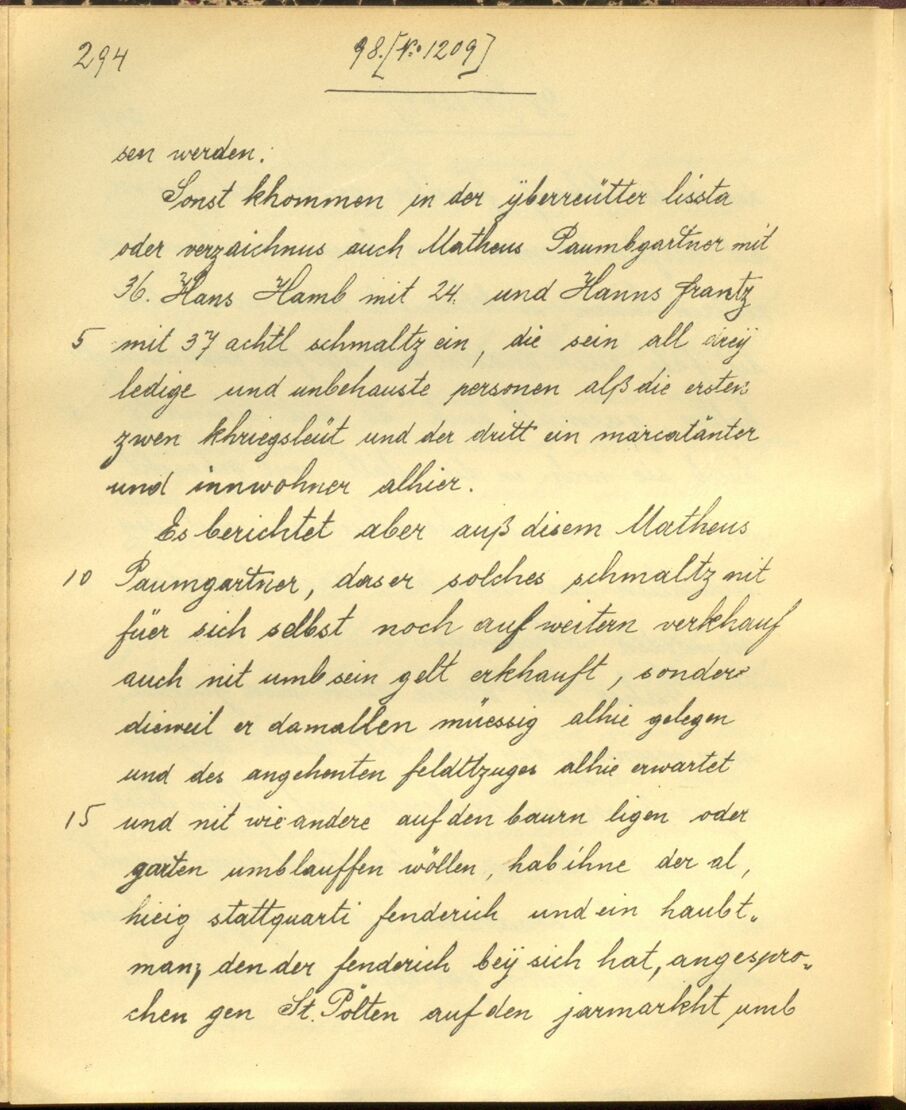 294
98. [No 1209]
sen werden.
Sonst khommen in der ÿberreütter lissta
oder verzaichnus auch Matheus Paumbgartner mit
36. Hans Hamb mit 24. und Hanns frantz
5 mit 37 achtl schmaltz ein, die sein all dreÿ
ledige und unbehauste personen alß die ersten
zwen khriegsleüt und der dritt ein marcatänter
und innwohner alhier.
Es berichtet aber auß disem Matheus
10 Paumgartner, das er solches schmaltz nit
füer sich selbst noch auf weitern verkhauf
auch nit umb sein gelt erkhauft, sonder
dieweil er damallen müessig alhie gelegen
und des angehenten feldtzuges alhie erwartet
15 und nit wie andere auf den baurn ligen oder
garten umblauffen wöllen, hab ihne der al,
hieig stattquarti fenderich und ein haubt„
man, den der fenderich beÿ sich hat, angespro„
chen gen St. Pölten auf den jarmarkht umb